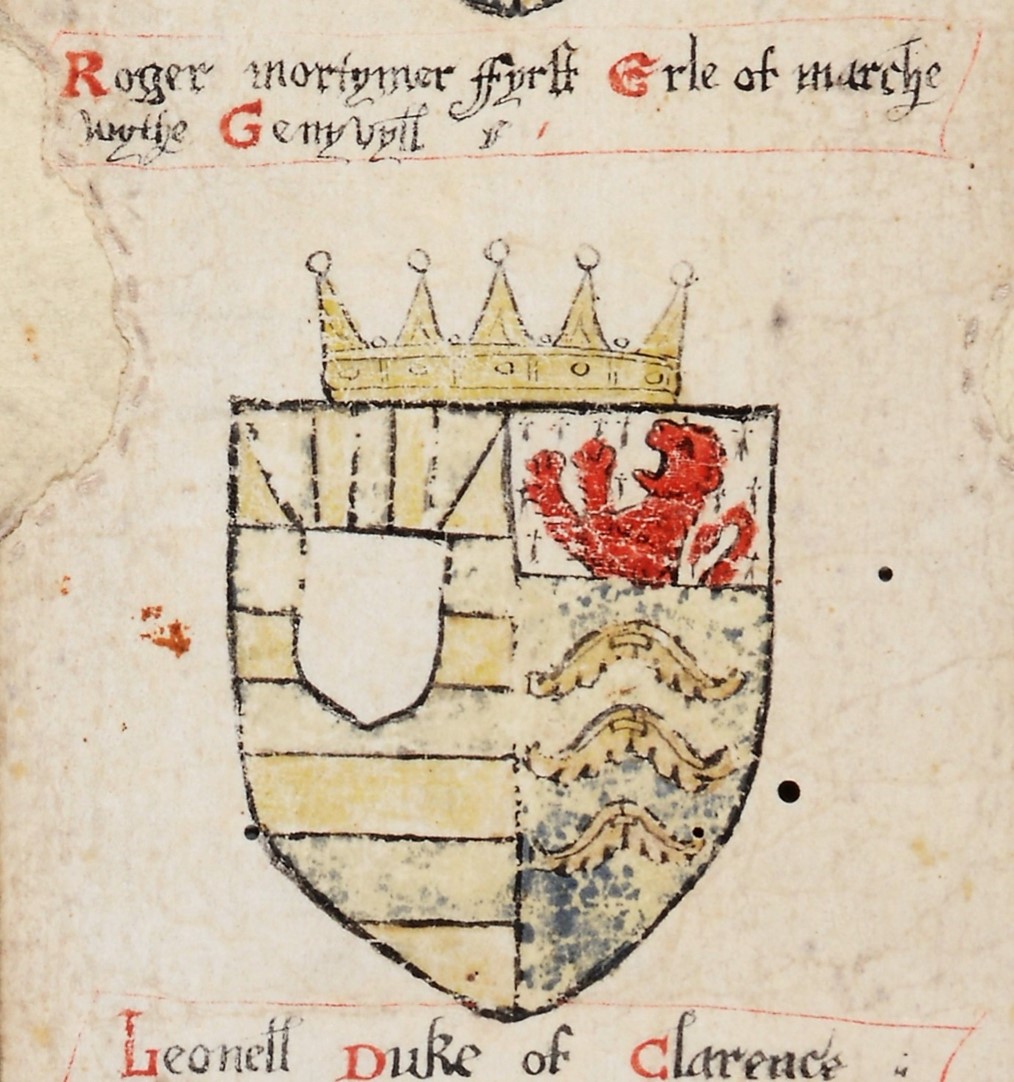 Roger mortymer ffyrst Erle of marche
wythe Genyvyll
Leonell Duke of Clarence